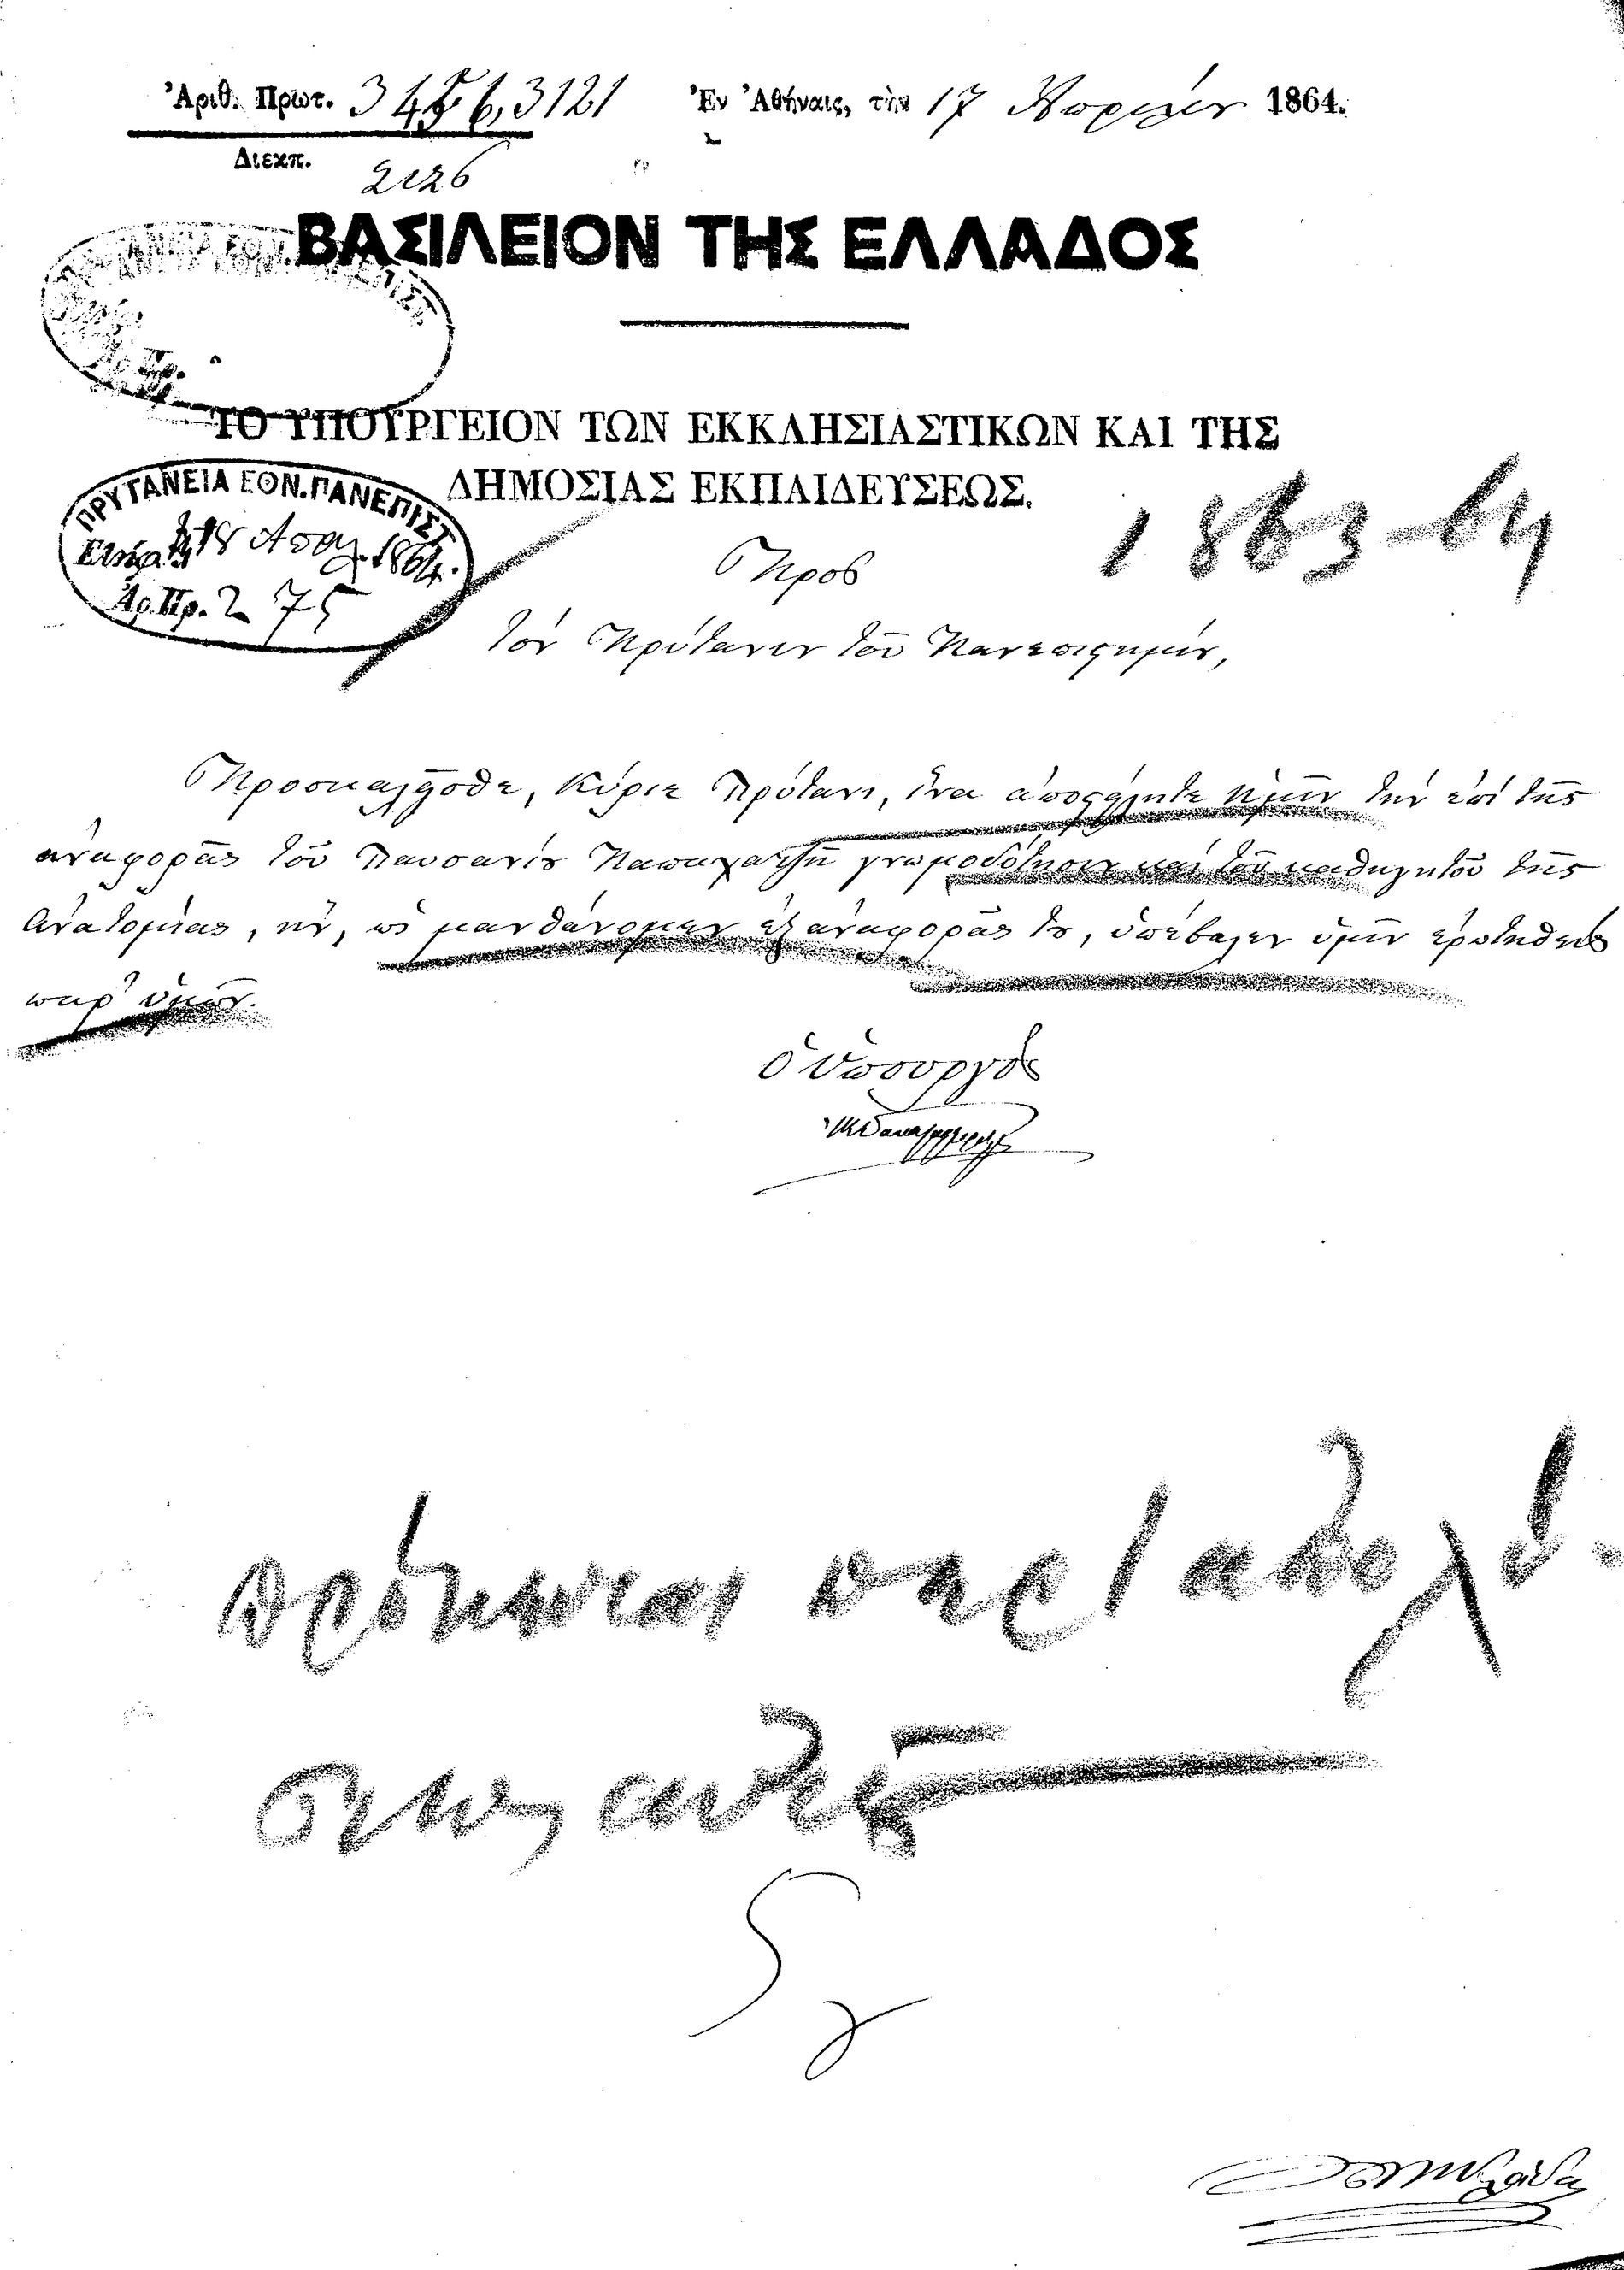 Ἀριθ. Πρωτ. 3456,3121 Ἐν Ἀθήναις, τὴν 17 Ἀπριλίου 1864.
Διεκπ. 2126
ΒΑΣΙΛΕΙΟΝ ΤΗΣ ΕΛΛΑΔΟΣ
ΤΟ ΥΠΟΥΡΓΕΙΟΝ ΤΩΝ ΕΚΚΛΗΣΙΑΣΤΙΚΩΝ ΚΑΙ ΤΗΣ
ΔΗΜΟΣΙΑΣ ΕΚΠΑΙΔΕΥΣΕΩΣ.
ΠΡΥΤΑΝΕΙΑ ΕΘΝ. ΠΑΝΕΠΙΣΤ.
18 Απρ. 1864.
Ἀρ. Πρ. 275
1863-64
Πρὸς
τὸν Πρύτανιν τοῦ Πανεπιστημίου,
Προσκαλεῖσθε, Κύριε Πρύτανι, ἵνα ἀποστείλητε ἡμῖν τὴν ἐπὶ τῆς
ἀναφορᾶς τοῦ Παυσανίου γνωμοδότησιν καὶ τοῦ καθηγητοῦ τῆς
Ἀνατομίας, ἣν, ὡς μανθάνομεν ἐξ ἀναφορᾶς του, ὑπέβαλεν ὑμῖν ἐρωτηθεὶς
παρ' ὑμῶν.
Ὁ Ὑπουργὸς
πρόκειται περὶ